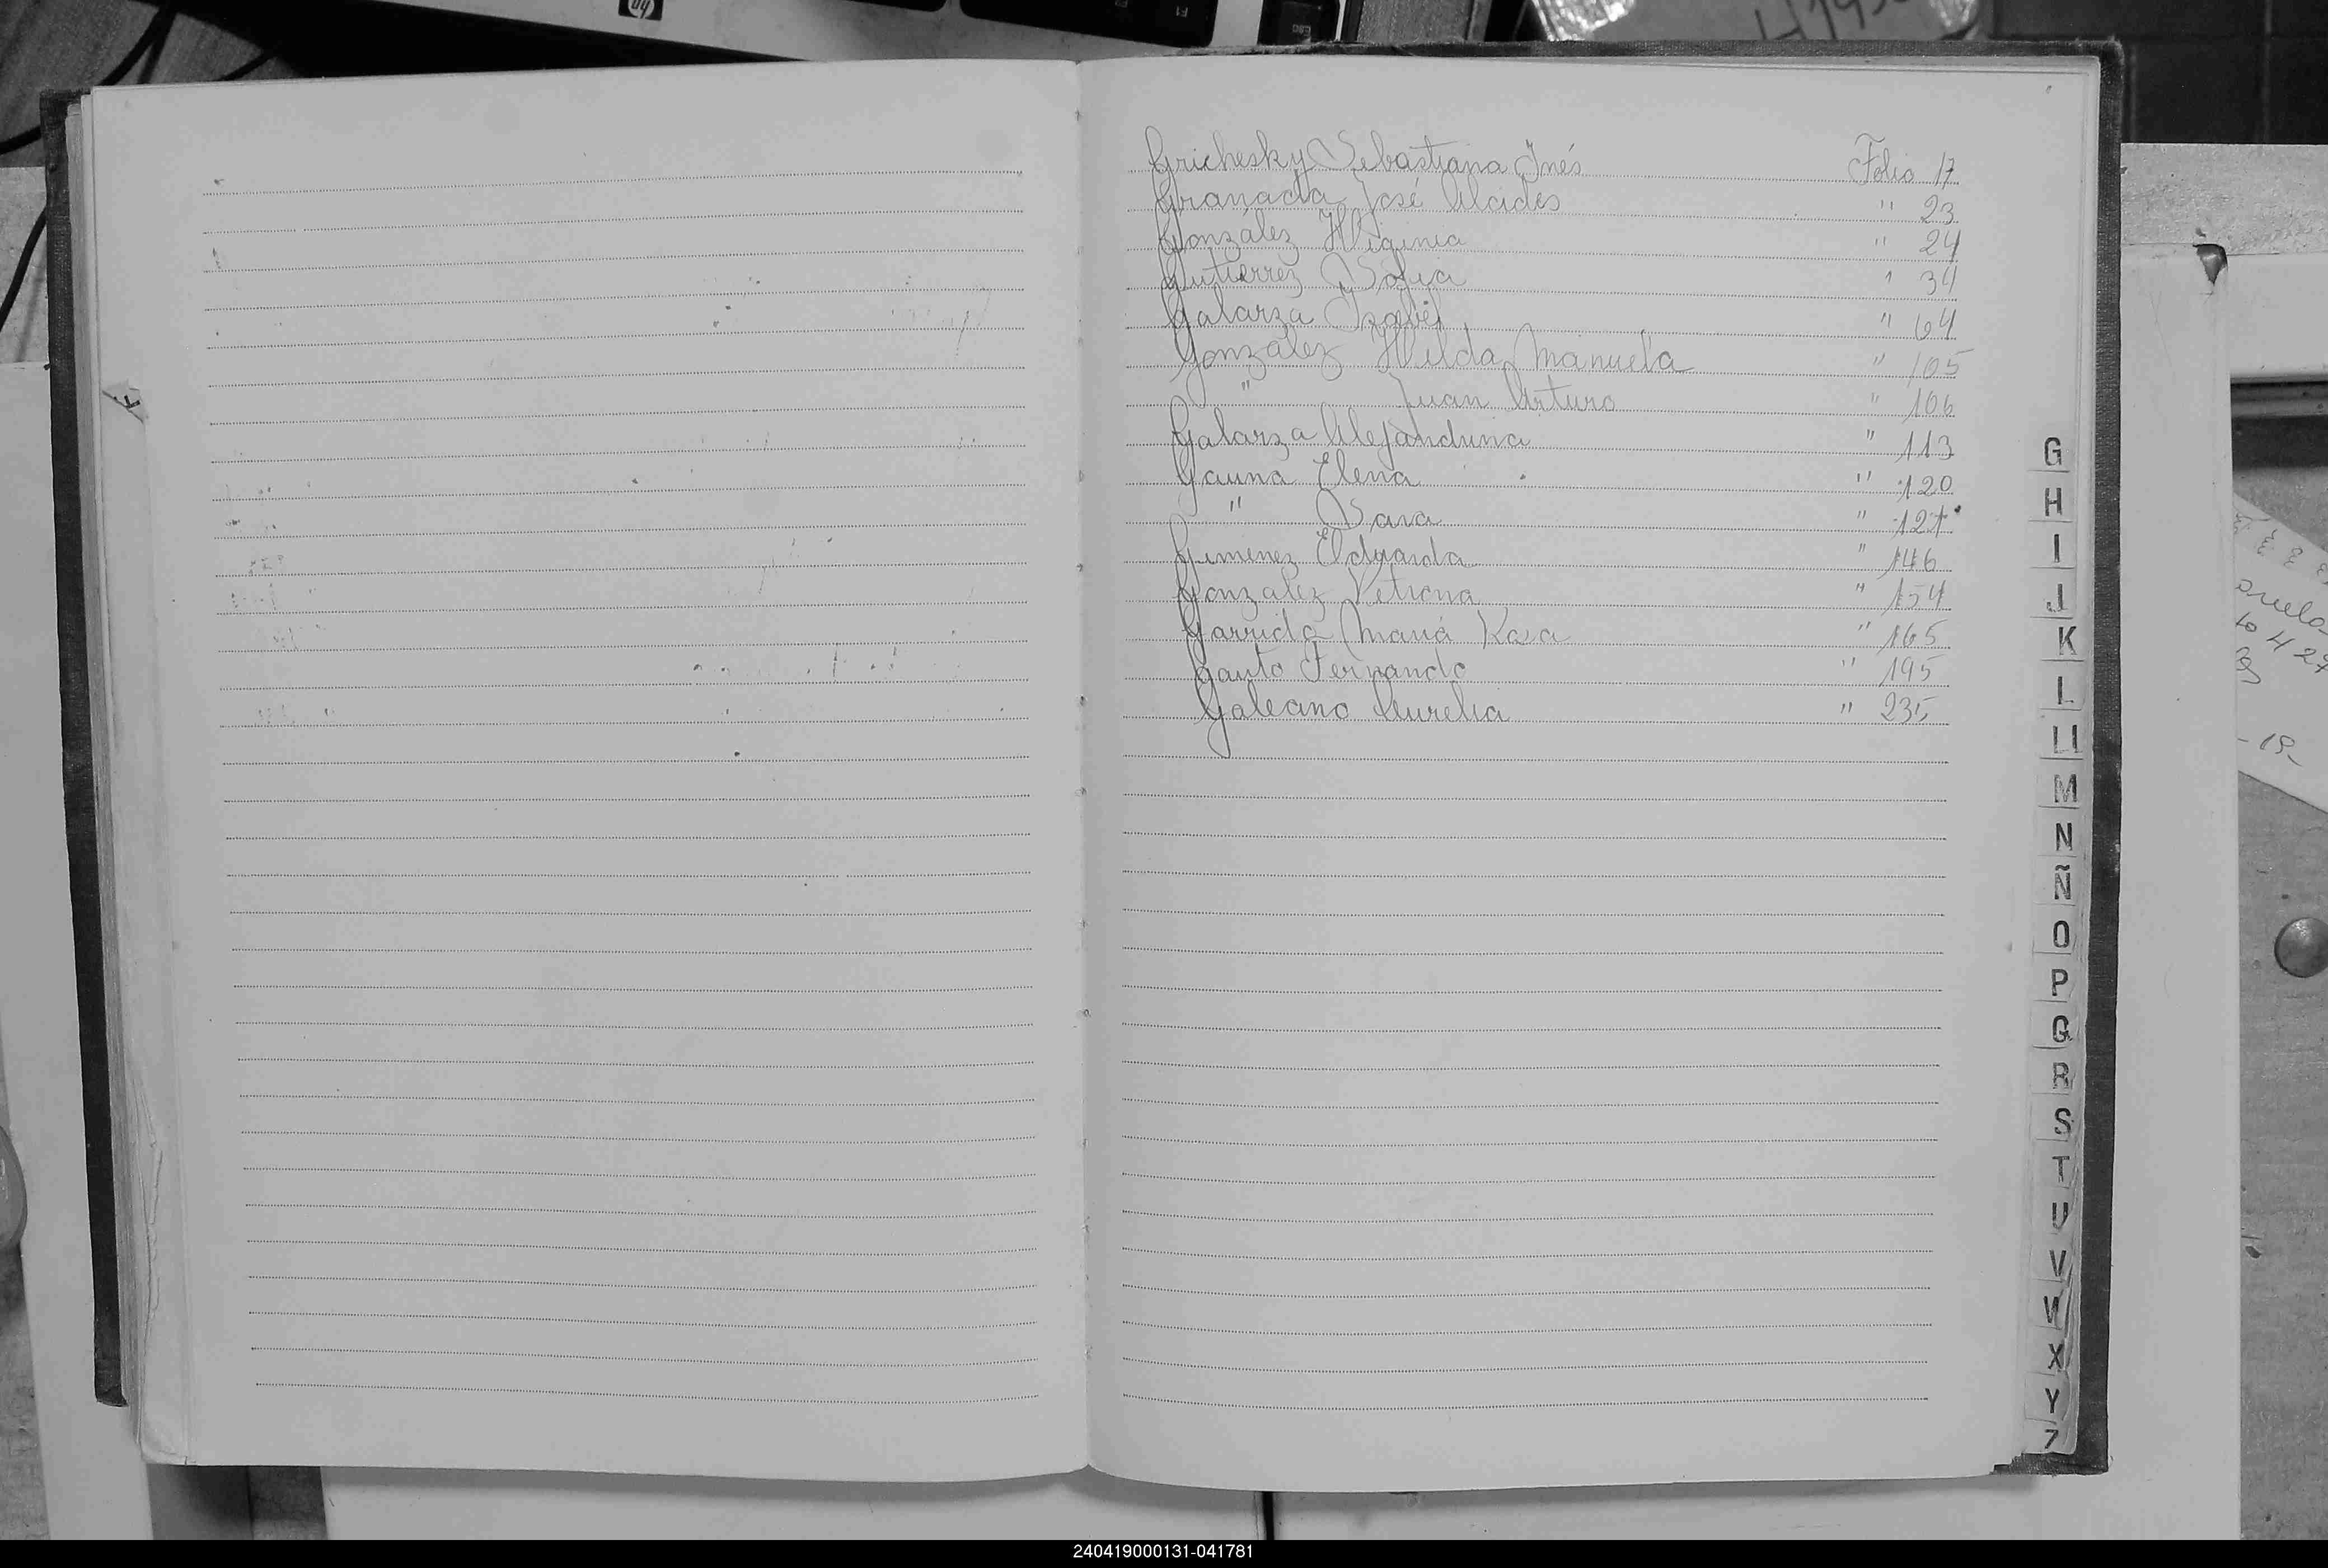 Grichesky Sebastiana Inés Folio 17
Granada José Alcides " 23
González Higinia " 24
Gutierrez Sofia " 34
Galarza Isabel " 64
González Hilda Manuela " 105
" Juan Arturo " 106
Galarza Alejandrina " 113
Gauna Elena " 120
" Sara " 121
Gimenez Eduarda " 146
Gonzalez Petrona " 154
Garrido María Rosa " 165
Gauto Fernando " 195
Galeano Aurelia " 235
F
G
H
I
J
K
L
Ll
M
N
Ñ
O
P
Q
R
S
T
U
V
W
X
Y
Z
hp
240419000131-041781